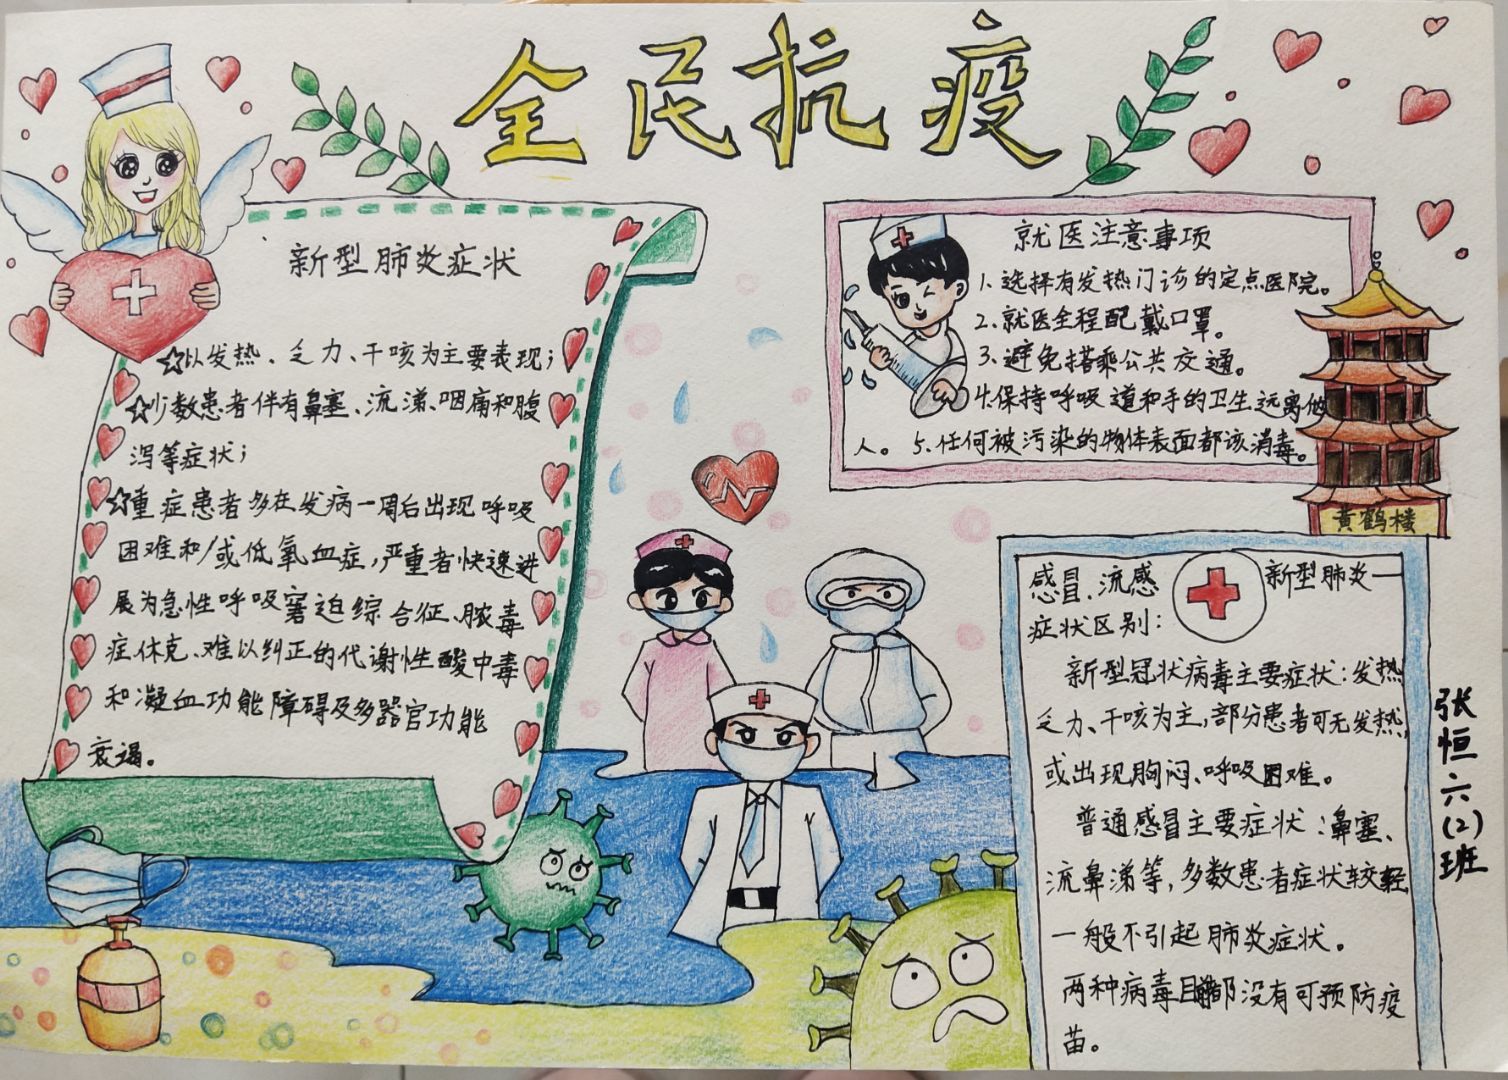 全民抗疫
新型肺炎症状
☆以发热、乏力、干咳为主要表现；
☆少数患者伴有鼻塞、流涕、咽痛和腹
泻等症状；
☆重症患者多在发病一周后出现呼吸
困难和/或低氧血症，严重者快速进
展为急性呼吸窘迫综合征、脓毒
症休克、难以纠正的代谢性酸中毒
和凝血功能障碍及多器官功能
衰竭。
就医注意事项
1.选择有发热门诊的定点医院。
2.就医全程配戴口罩。
3.避免搭乘公共交通。
4.保持呼吸道和手的卫生远离他
人。5.任何被污染的物体表面都该消毒。
黄鹤楼
感冒、流感 新型肺炎一
症状区别：
新型冠状病毒主要症状：发热
乏力、干咳为主，部分患者可无发热，
或出现胸闷、呼吸困难。
普通感冒主要症状：鼻塞、
流鼻涕等，多数患者症状较轻
一般不引起肺炎症状。
两种病毒目前都没有可预防疫
苗。
张恒六(2)班